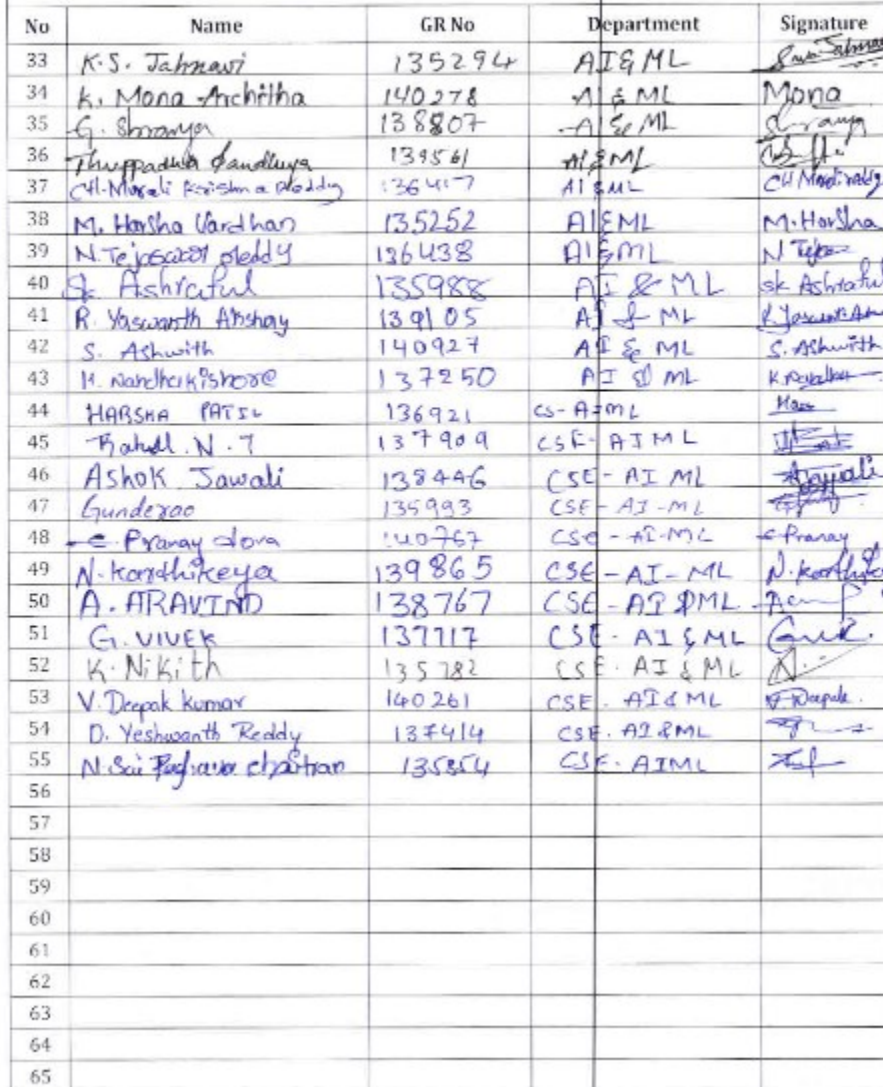 No Name GR No Department Signature
33 K.S. Jahnavi 135294 AI&ML
34 K. Mona Architha 140278 AI & ML Mona
35 G. Shranya 138807 AI & ML Shranya
36 139561 AI&ML
37 CH. Murali Krishna Reddy 136417 AI&ML
38 M. Harsha Vardhan 135252 AI&ML M. Harsha
39 N. Reddy 136438 AI&ML N
40 Sk Ashraful 135988 AI & ML sk Ashraful
41 R. Yaswanth Akshay 139105 AI & ML
42 S. Ashwith 140927 AI & ML S. Ashwith
43 Nandhakishore 137250 AI & ML
44 HARSHA PATIL 136921 CS-AIML
45 N. 137909 CSE-AIML
46 Ashok Jawali 138446 CSE-AI ML
47 Gunderao 135993 CSE-AI-ML
48 Pranay 140767 CSE-AI-ML Pranay
49 N. Karthikeya 139865 CSE-AI-ML
50 A. ARAVIND 138767 CSE-AI&ML
51 G. VIVEK 137717 CSE-AI&ML
52 K. Nikith 135782 CSE. AI & ML
53 V. Deepak kumar 140261 CSE. AI&ML V. Deepak.
54 D. Yeshwanth Reddy 137414 CSE. AI&ML
55 N. Sai 135854 CSE. AIML
56
57
58
59
60
61
62
63
64
65